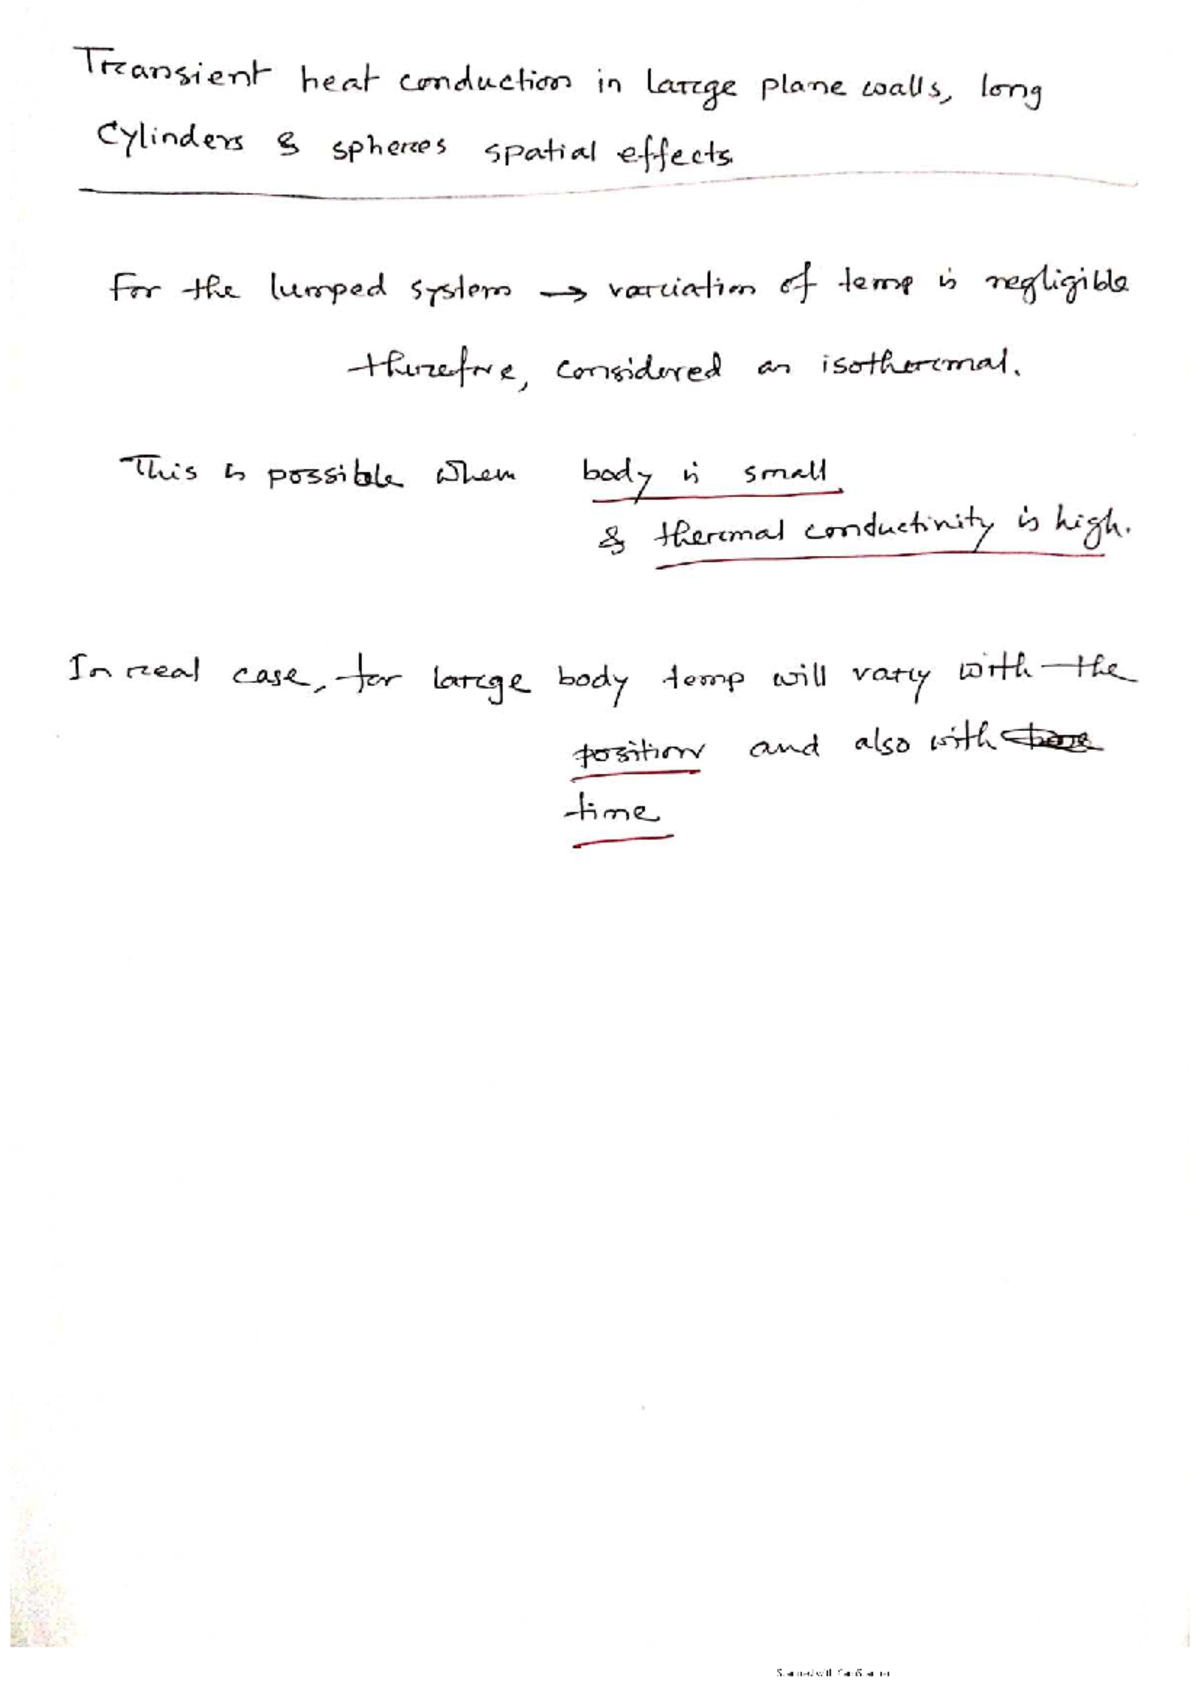 Transient heat conduction in large plane walls, long
Cylinders & spheres spatial effects.
For the lumped system → variation of temp is negligible
therefore, considered as isothermal.
This is possible when body is small
& thermal conductinity is high.
In real case, for large body temp will vary with the
position and also with
time